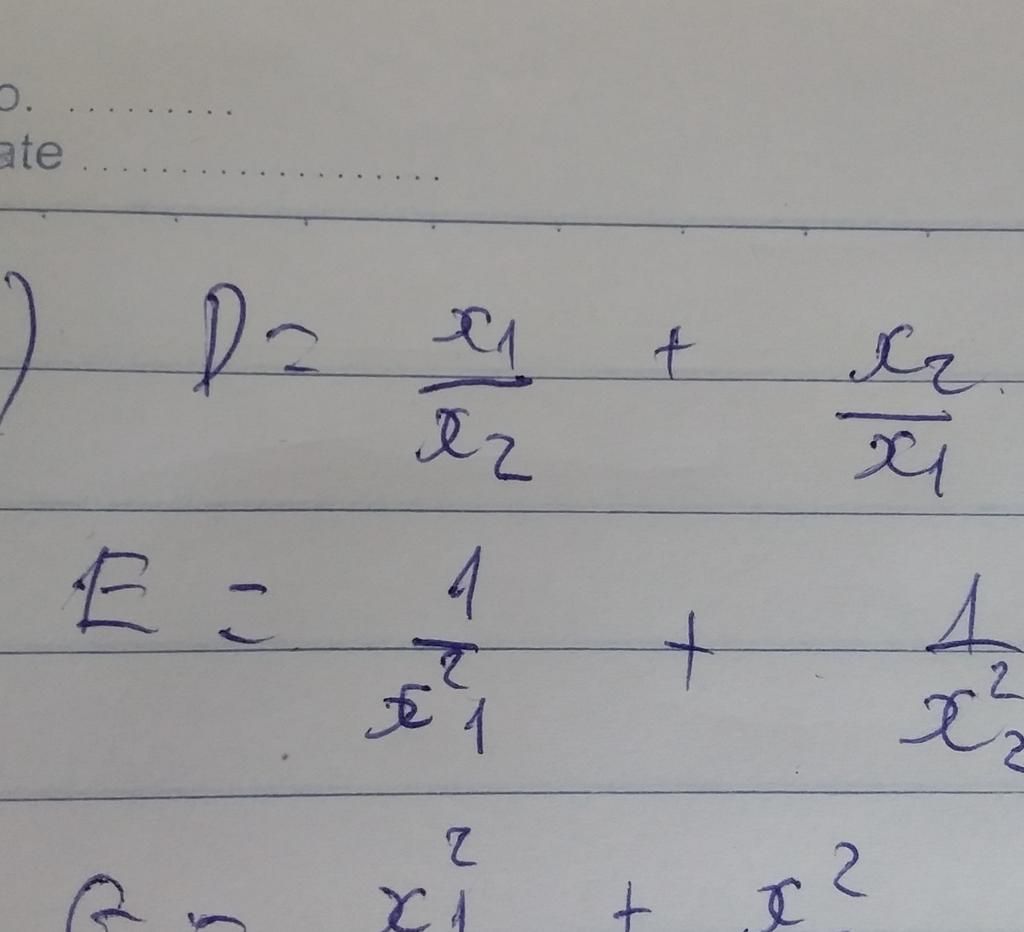 o. .........
ate ...................
) D = x₁/x₂ + x₂/x₁
E = 1/x₁² + 1/x₂²
x₁² + x²